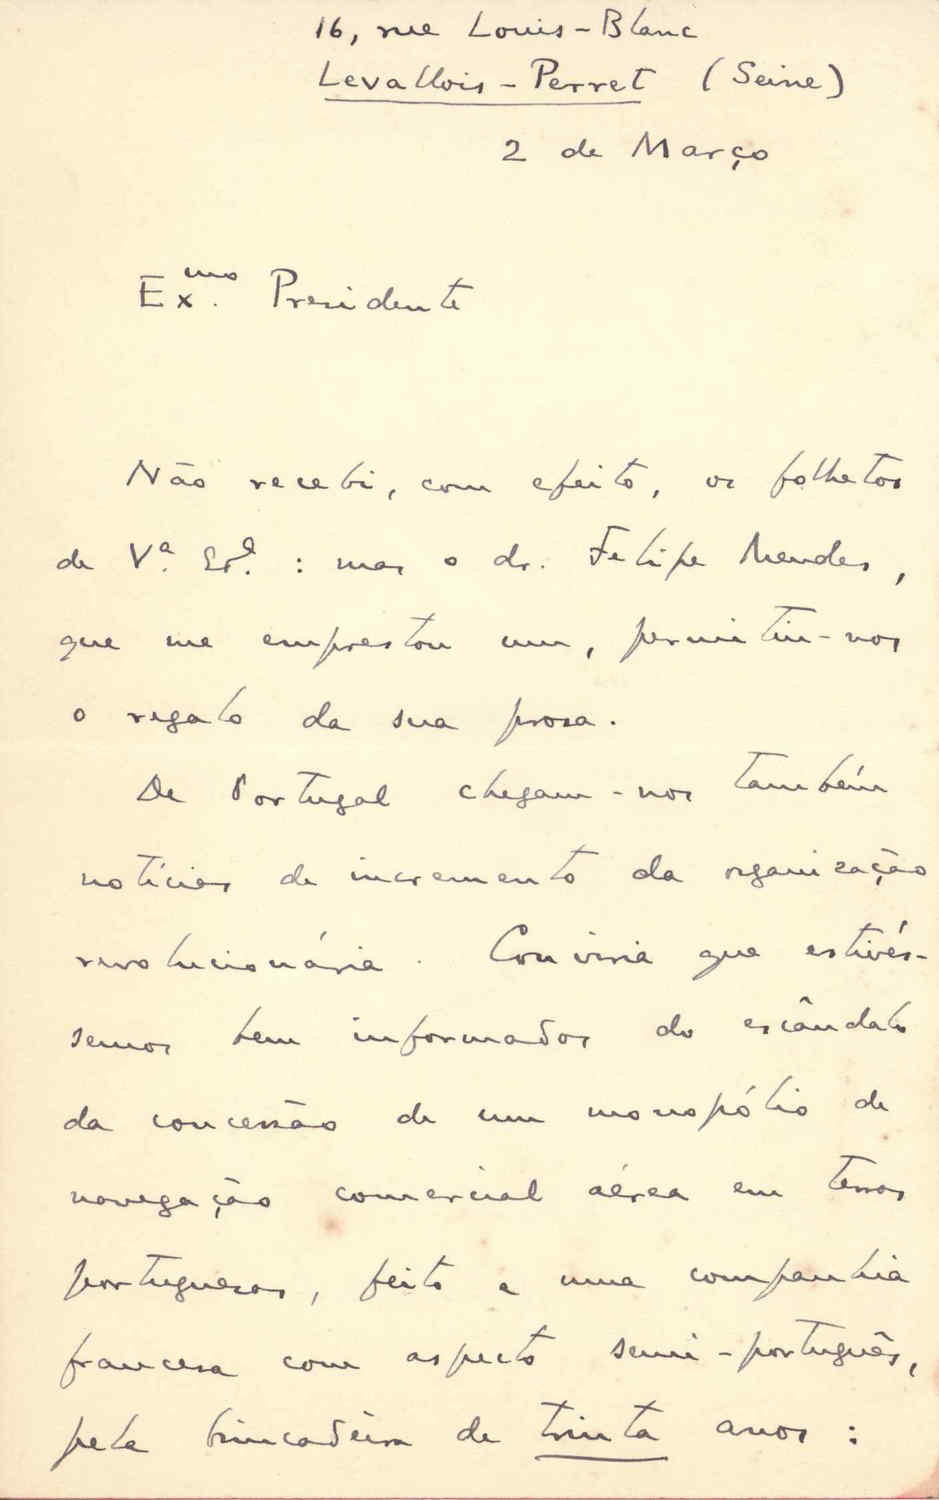 16, rue Louis-Blanc
Levallois-Perret (Seine)
2 de Março
Exmo. Presidente
Não recebi, com efeito, os folhetos
de Vª. Exª. : mas o dr. Felipe Mendes,
que me emprestou um, permitiu-nos
o regalo da sua prosa.
De Portugal chegam-nos também
notícias de incremento da organização
revolucionária. Conviria que estivés-
semos bem informados do escândalo
da concessão de um monopólio de
navegação comercial aérea em terras
portuguesas, feito a uma companhia
francesa com aspecto semi-português,
pela brincadeira de trinta anos :